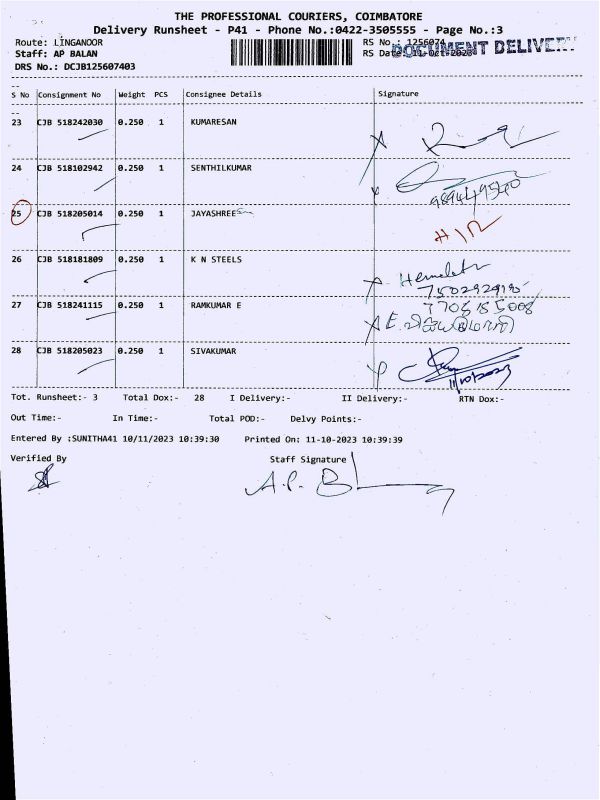 THE PROFESSIONAL COURIERS, COIMBATORE
Delivery Runsheet - P41 - Phone No.:0422-3505555 - Page No.:3
Route: LINGANOOR RS No.: 1256074
Staff: AP BALAN RS Date: 11-Oct-2023
DOCUMENT DELIVERY
DRS No.: DCJB125607403
S No Consignment No Weight PCS Consignee Details Signature
23 CJB 518242030 0.250 1 KUMARESAN
24 CJB 518102942 0.250 1 SENTHILKUMAR
25 CJB 518205014 0.250 1 JAYASHREE
26 CJB 518181809 0.250 1 K N STEELS
27 CJB 518241115 0.250 1 RAMKUMAR E
7708155008
28 CJB 518205023 0.250 1 SIVAKUMAR
11/10/2023
Tot. Runsheet:- 3 Total Dox:- 28 I Delivery:- II Delivery:- RTN Dox:-
Out Time:- In Time:- Total POD:- Delvy Points:-
Entered By :SUNITHA41 10/11/2023 10:39:30 Printed On: 11-10-2023 10:39:39
Verified By Staff Signature
A.P. B